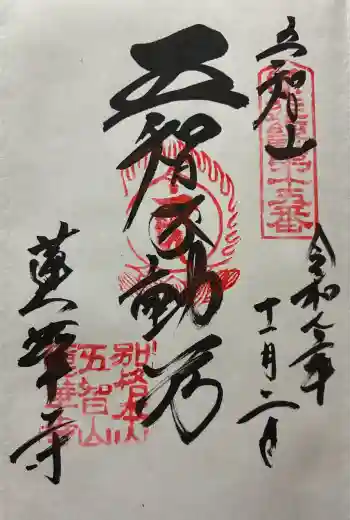 五智山
令和七年
十一月二日
五智不動尊
蓮華寺
第十五番
別格本山
五智山
蓮華寺